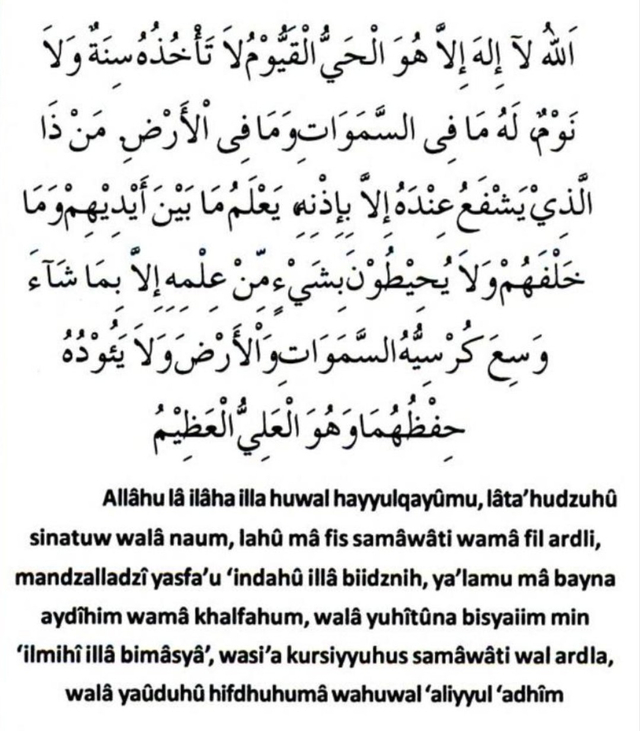 اَللهُ لآ إِلهَ إِلاَّ هُوَ الْحَيُّ الْقَيُّوْمُ لاَ تَأْخُذُهُ سِنَةٌ وَلاَ
نَوْمٌ، لَهُ مَا فِى السَّمَوَاتِ وَمَا فِى اْلأَرْضِ مَنْ ذَا
الَّذِيْ يَشْفَعُ عِنْدَهُ إِلاَّ بِإِذْنِهِ يَعْلَمُ مَا بَيْنَ أَيْدِيْهِمْ وَمَا
خَلْفَهُمْ وَلاَ يُحِيْطُوْنَ بِشَيْءٍ مِّنْ عِلْمِهِ إِلاَّ بِمَا شَآءَ
وَسِعَ كُرْسِيُّهُ السَّمَوَاتِ وَاْلأَرْضَ وَلاَ يَئُوْدُهُ
حِفْظُهُمَا وَهُوَ الْعَلِيُّ الْعَظِيْمُ
Allâhu lâ ilâha illa huwal hayyulqayûmu, lâta’hudzuhû
sinatuw walâ naum, lahû mâ fis samâwâti wamâ fil ardli,
mandzalladzî yasfa’u ‘indahû illâ biidznih, ya’lamu mâ bayna
aydîhim wamâ khalfahum, walâ yuhîtûna bisyaiim min
‘ilmihî illâ bimâsyâ’, wasi’a kursiyyuhus samâwâti wal ardla,
walâ yaûduhû hifdhuhumâ wahuwal ‘aliyyul ‘adhîm